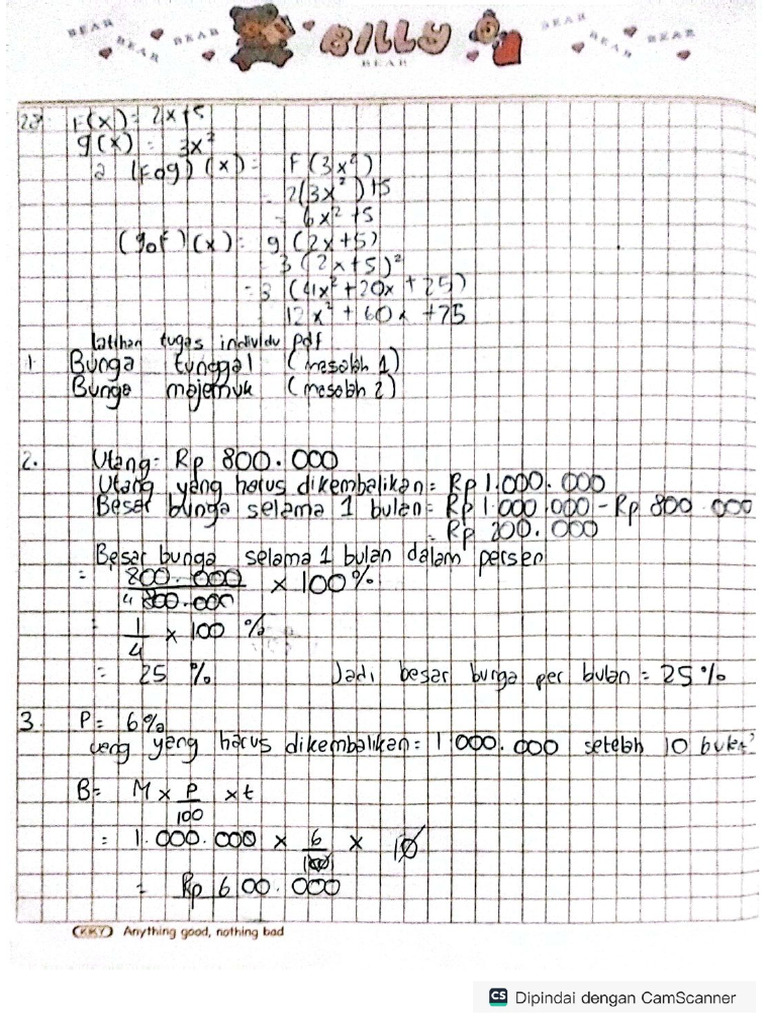 BEAR BEAR BEAR BILLY BEAR BEAR BEAR BEAR
F(x) = 2x+5
g(x) = 3x²
a (Fog)(x) = F(3x²)
= 2(3x²)+5
= 6x²+5
(gof)(x) = g(2x+5)
= 3(2x+5)²
= 3(4x²+20x+25)
12x² + 60x +75
latihan tugas individu pdf
1. Bunga tunggal (masalah 1)
Bunga majemuk (masalah 2)
2. Utang = Rp 800.000
Utang yang harus dikembalikan = Rp 1.000.000
Besar bunga selama 1 bulan = Rp 1.000.000 - Rp 800.000
= Rp 200.000
Besar bunga selama 1 bulan dalam persen
= 800.000 / 800.000 x 100%
= 1/4 x 100 %
= 25 % Jadi besar bunga per bulan = 25%
3. P = 6%
yang harus dikembalikan = 1.000.000 setelah 10 bulan
B = M x P/100 x t
= 1.000.000 x 6/100 x 10
= Rp 600.000
KKY Anything good, nothing bad
CS Dipindai dengan CamScanner